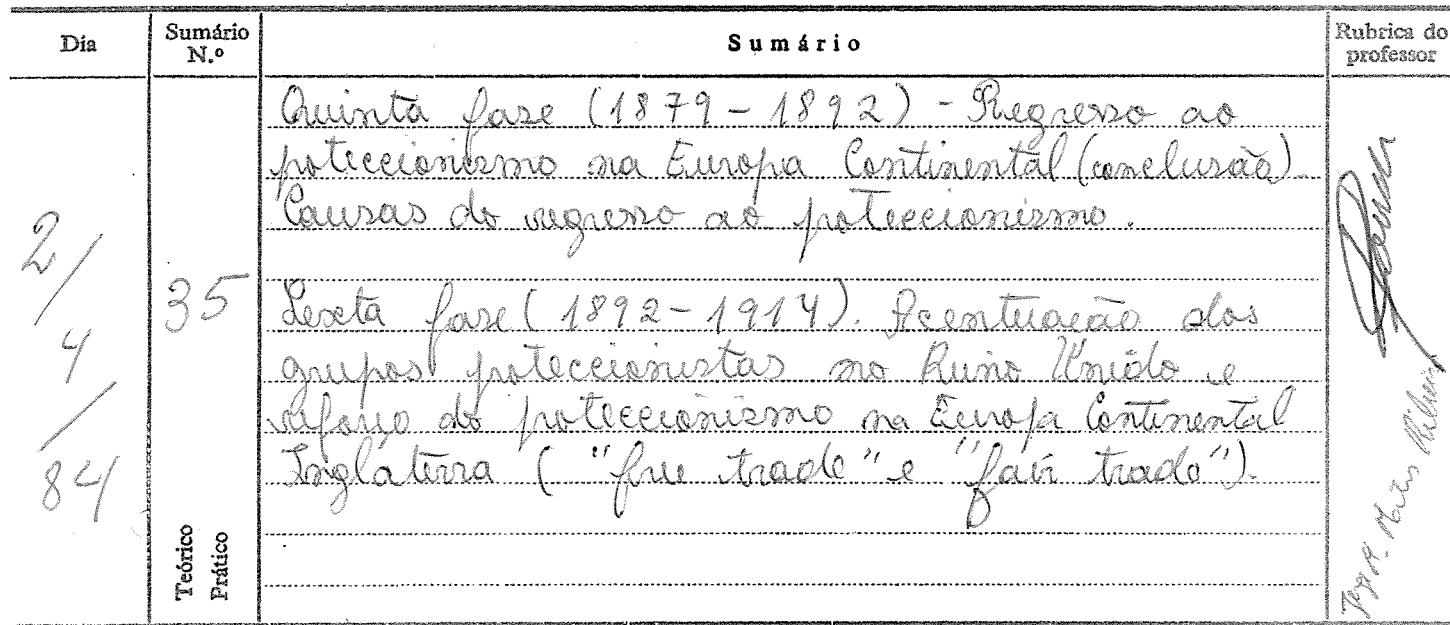 Dia
Sumário N.º
Sumário
Rubrica do professor
2/4/84
35
Teórico
Prático
Quinta fase (1879-1892) - Regresso ao
poteccionismo na Europa Continental (conclusão).
Causas do regresso ao poteccionismo.
Sexta fase (1892-1914). Acentuação dos
grupos poteccionistas no Reino Unido e
reforço do poteccionismo na Europa Continental
Inglaterra ("free trade" e "fair trade").